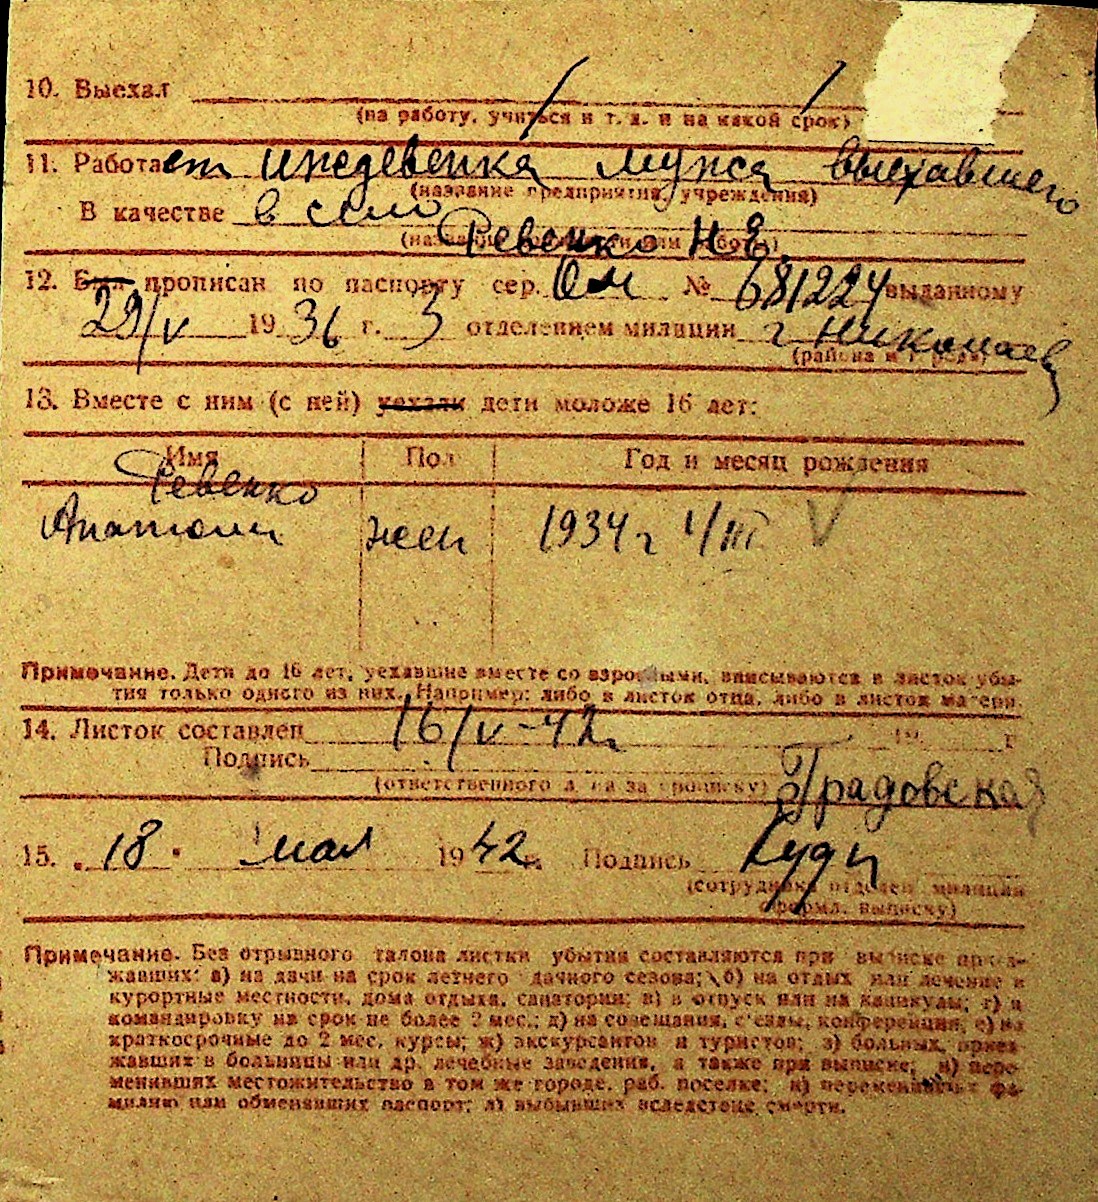 10. Выехал
(на работу, учиться и т. д. и на какой срок)
11. Работает иждевенка мужа выехавшего
(название предприятия, учреждения)
В качестве в село
Ревенко Н.Е.
12. Был прописан по паспорту сер. Ом № 681224 выданному
29/V 1936 г. 3 отделением милиции г Николаев
(района и города)
13. Вместе с ним (с ней) уехали дети моложе 16 лет:
Имя Пол Год и месяц рождения
Ревенко
Анатолий жен 1934 г 1/III V
Примечание. Дети до 16 лет, уехавшие вместе со взрослыми, вписываются в листок убы-
тия только одного из них. Например: либо в листок отца, либо в листок матери.
14. Листок составлен 16/V-42 г. 19 г
Подпись
(ответственного лица за прописку) Градовская
15. „18" мая 1942 г. Подпись
(сотрудника отделен. милиции
формл. выписку)
Примечание. Без отрывного талона листки убытия составляются при выписке приез-
жавших: а) на дачи на срок летнего дачного сезона; б) на отдых или лечение в
курортные местности, дома отдыха, санатории; в) в отпуск или на каникулы; г) в
командировку на срок не более 2 мес.; д) на совещания, с'езды, конференции, е) на
краткосрочные до 2 мес. курсы; ж) экскурсантов и туристов; з) больных, приез-
жавших в больницы или др. лечебные заведения, а также при выписке; и) пере-
менивших местожительство в том же городе, раб. поселке; к) переменивших фа-
милию или обменявших паспорт; л) выбывших вследствие смерти.